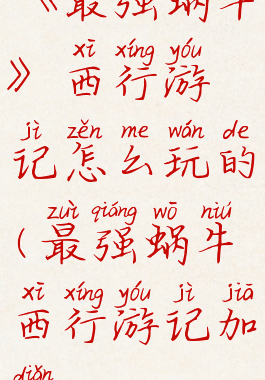 《最强蜗牛
xī xíng yóu
》西行游
jì zěn me wán de
记怎么玩的
zuì qiáng wō niú
(最强蜗牛
xī xíng yóu jì jiā
西行游记加
diǎn